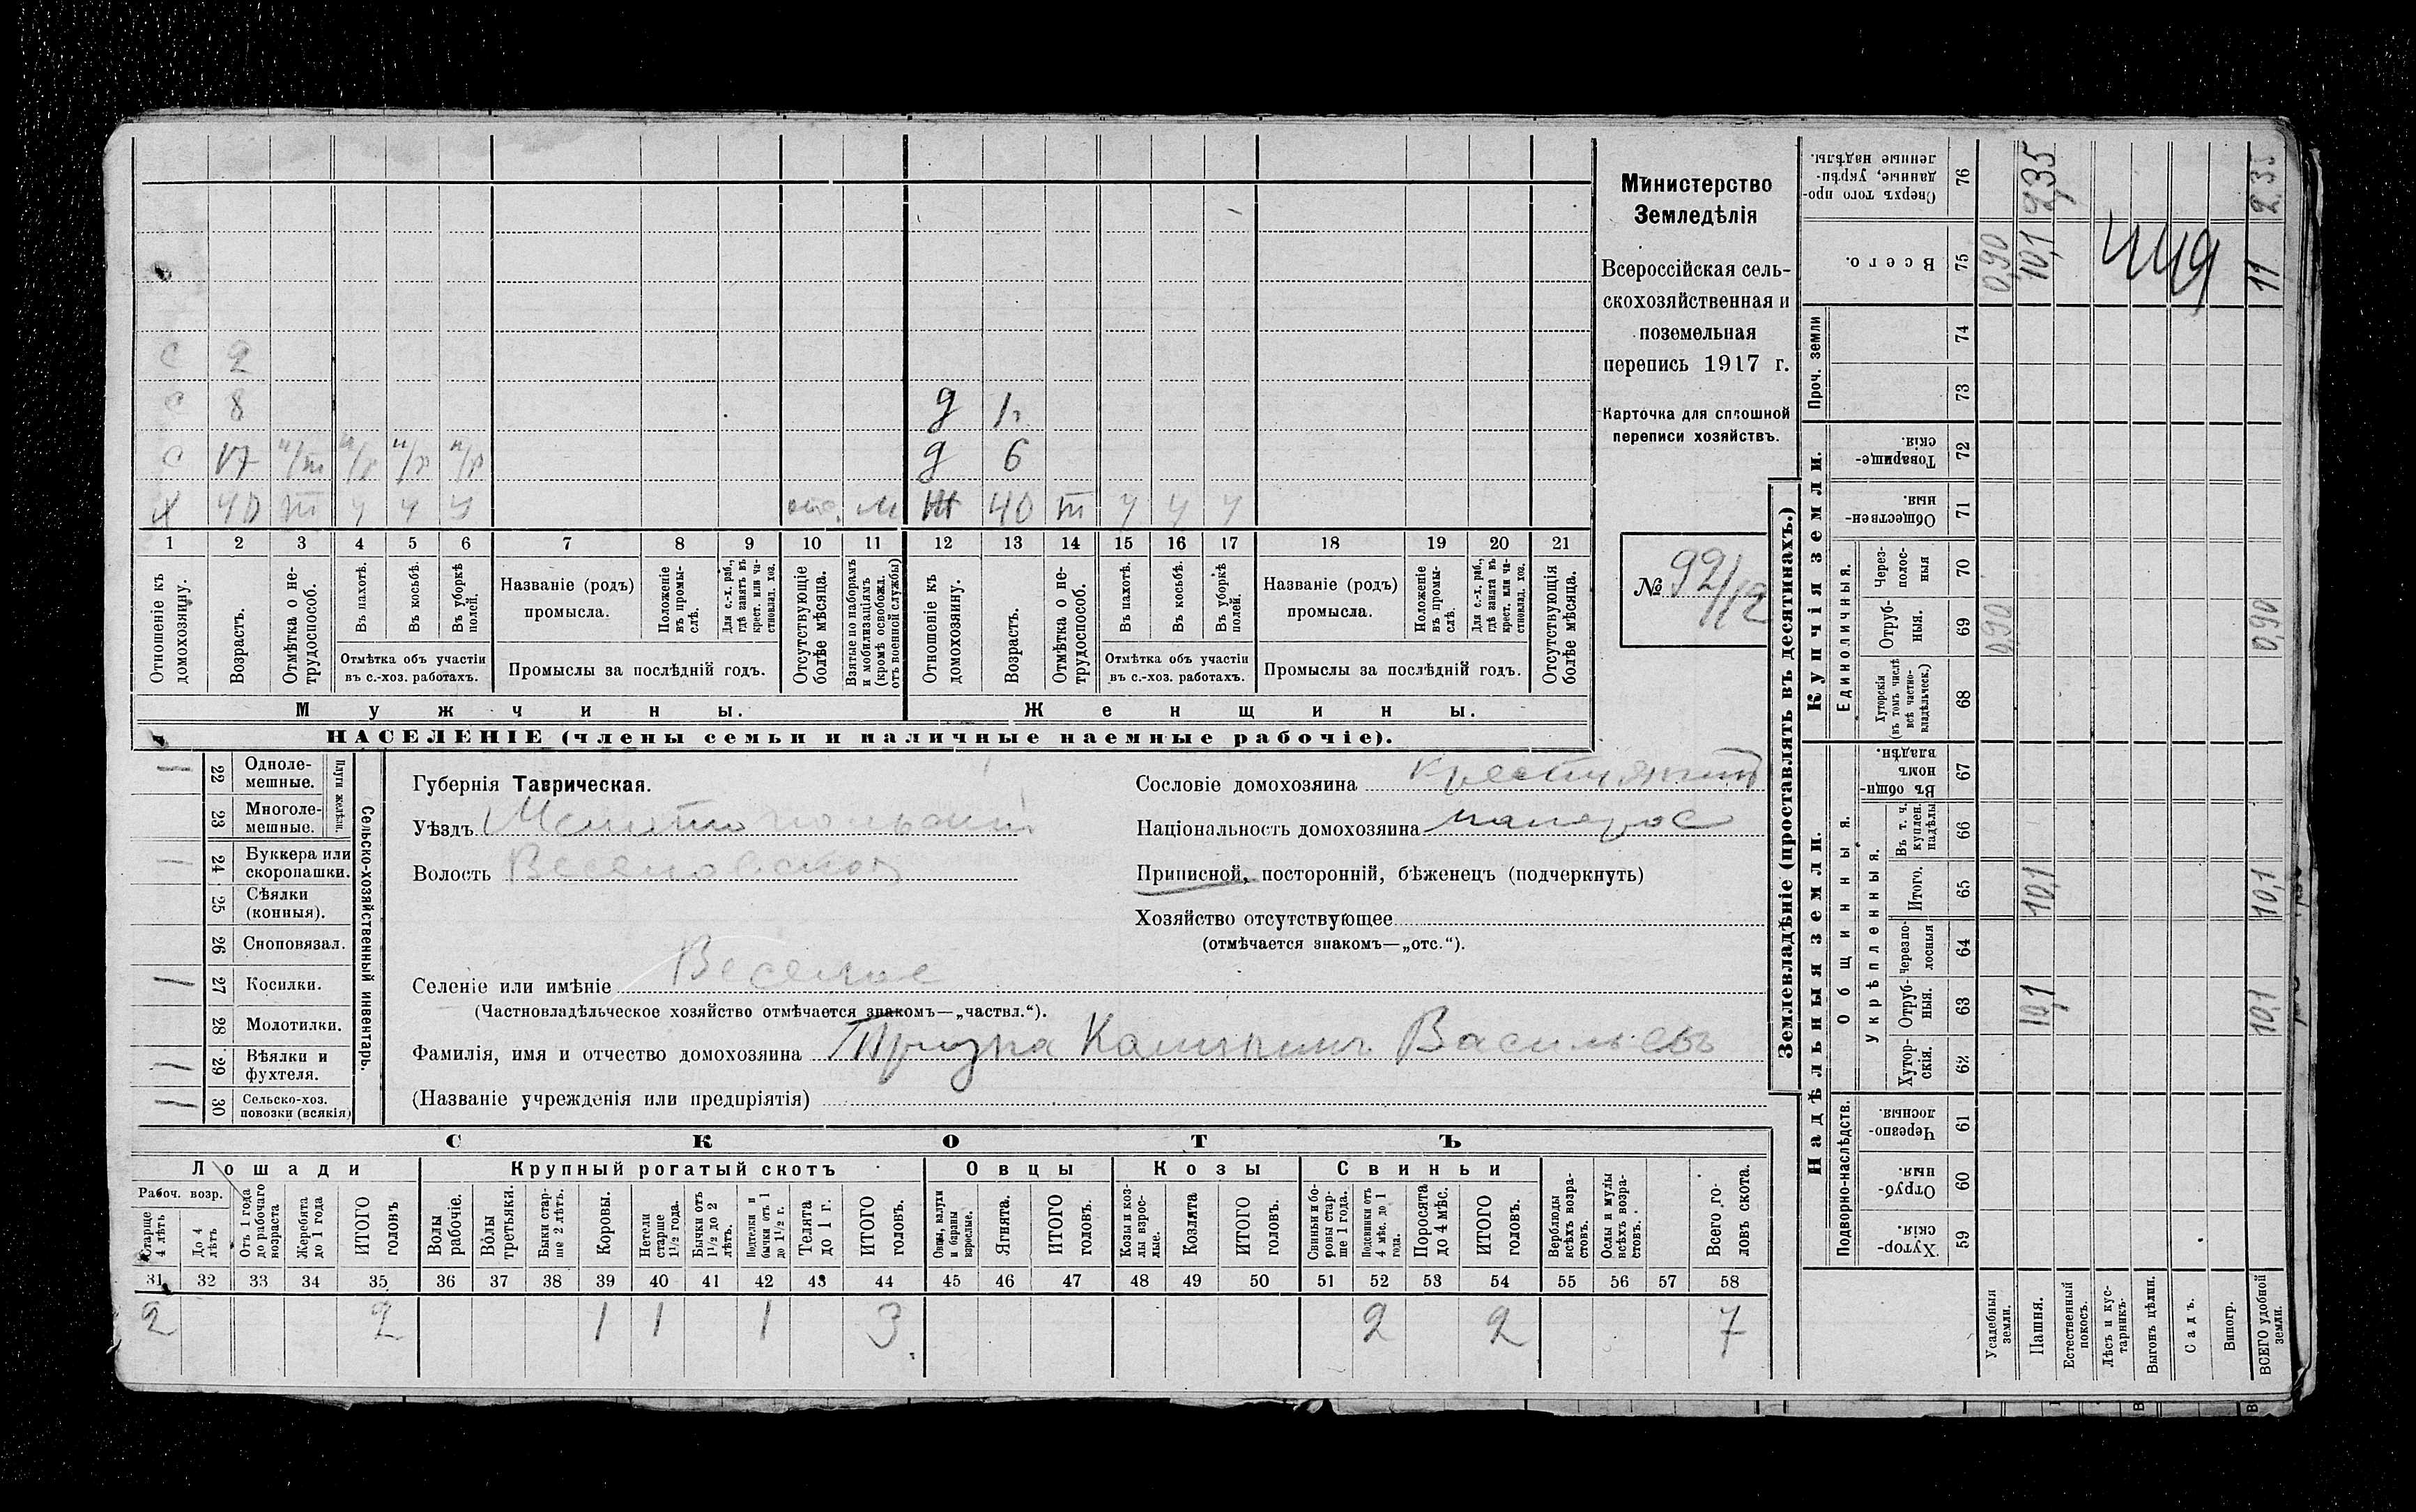 с 2
с 8 д 1 г.
с 17 н/т н/р н/р н/р д 6
х 40 т ч ч ч отс. м ж 40 т ч ч ч
1 2 3 4 5 6 7 8 9 10 11 12 13 14 15 16 17 18 19 20 21
Отношеніе къ домохозяину.
Возрастъ.
Отмѣтка о нетрудоспособ.
Въ пахотѣ.
Въ косьбѣ.
Въ уборкѣ полей.
Отмѣтка объ участіи въ с.-хоз. работахъ.
Названіе (родъ) промысла.
Положеніе въ промыслѣ.
Для с.-х. раб., гдѣ занятъ въ крест. или частновлад. хоз.
Промыслы за послѣдній годъ.
Отсутствующіе болѣе мѣсяца.
Взятые по наборамъ и мобилизаціямъ (кромѣ освобожд. отъ военной службы)
Отношеніе къ домохозяину.
Возрастъ.
Отмѣтка о нетрудоспособ.
Въ пахотѣ.
Въ косьбѣ.
Въ уборкѣ полей.
Отмѣтка объ участіи въ с.-хоз. работахъ.
Названіе (родъ) промысла.
Положеніе въ промыслѣ.
Для с.-х. раб., гдѣ занята въ крест. или частновлад. хоз.
Промыслы за послѣдній годъ.
Отсутствующія болѣе мѣсяца.
Мужчины. Женщины.
НАСЕЛЕНІЕ (члены семьи и наличные наемные рабочіе).
Министерство
Земледѣлія
Всероссійская сель-
скохозяйственная и
поземельная
перепись 1917 г.
Карточка для сплошной
переписи хозяйствъ.
№ 92/12
22 Одноле-мешные.
23 Многоле-мешные.
Плуги желѣзн.
24 Буккера или скоропашки.
25 Сѣялки (конныя).
26 Сноповязал.
27 Косилки.
28 Молотилки.
29 Вѣялки и фухтеля.
30 Сельско-хоз. повозки (всякія)
Сельско-хозяйственный инвентарь.
Губернія Таврическая.
Уѣздъ Мелитопольский
Волость Веселовская
Сословіе домохозяина крестьянинъ
Національность домохозяина малорос
Приписной, посторонній, бѣженецъ (подчеркнуть)
Хозяйство отсутствующее
(отмѣчается знакомъ—„отс.“).
Селеніе или имѣніе Веселое
(Частновладѣльческое хозяйство отмѣчается знакомъ—„частвл.“).
Фамилія, имя и отчество домохозяина Васильевъ
(Названіе учрежденія или предпріятія)
СКОТЪ
Лошади Крупный рогатый скотъ Овцы Козы Свиньи
Рабоч. возр.
Старше 4 лѣтъ
До 4 лѣтъ
Отъ 1 года до рабочаго возраста
Жеребята до 1 года
ИТОГО головъ
Волы рабочіе.
Волы третьяки.
Быки старше 2 лѣтъ.
Коровы.
Нетели старше 1½ года.
Бычки отъ 1½ до 2 лѣтъ.
Подтелки и бычки отъ 1 до 1½ г.
Телята до 1 г.
ИТОГО головъ.
Овцы, валухи и бараны взрослые.
Ягнята.
ИТОГО головъ.
Козы и козлы взрослые.
Козлята
ИТОГО головъ.
Свиньи и боровы старше 1 года.
Подсвинки отъ 4 мѣс. до 1 года.
Поросята до 4 мѣс.
ИТОГО головъ.
Верблюды всѣхъ возрастовъ.
Ослы и мулы всѣхъ возрастовъ.
Всего головъ скота.
31 32 33 34 35 36 37 38 39 40 41 42 43 44 45 46 47 48 49 50 51 52 53 54 55 56 57 58
2 2 1 1 1 3 2 2 7
Землевладѣніе (проставлять въ десятинахъ.)
Купчія земли.
Надѣльныя земли.
Сверхъ того проданные, укрѣпленные надѣлы. 76 2,35 2,35
Всего. 75 0,90 10,1 11
Проч. земли 74 73
Товарищескія. 72
Общественныя. 71
Единоличныя.
Черезполосныя 70
Отрубныя. 69 0,90 0,90
Хуторскія (въ томъ числѣ всѣ частновладѣльческ.) 68
Общинныя.
Въ общинномъ владѣн. 67
Укрѣпленныя.
Въ т. ч. куплен. надѣлы 66
Итого. 65 10,1 10,1
Черезполосныя 64
Отрубныя. 63 10,1 10,1
Хуторскія. 62
Подворно-наслѣдств.
Черезполосныя. 61
Отрубныя. 60
Хуторскія 59
Усадебныя земли.
Пашня.
Естественный покосъ.
Лѣсъ и кустарникъ.
Выгонъ цѣлин.
Садъ.
Виногр.
ВСЕГО удобной земли.